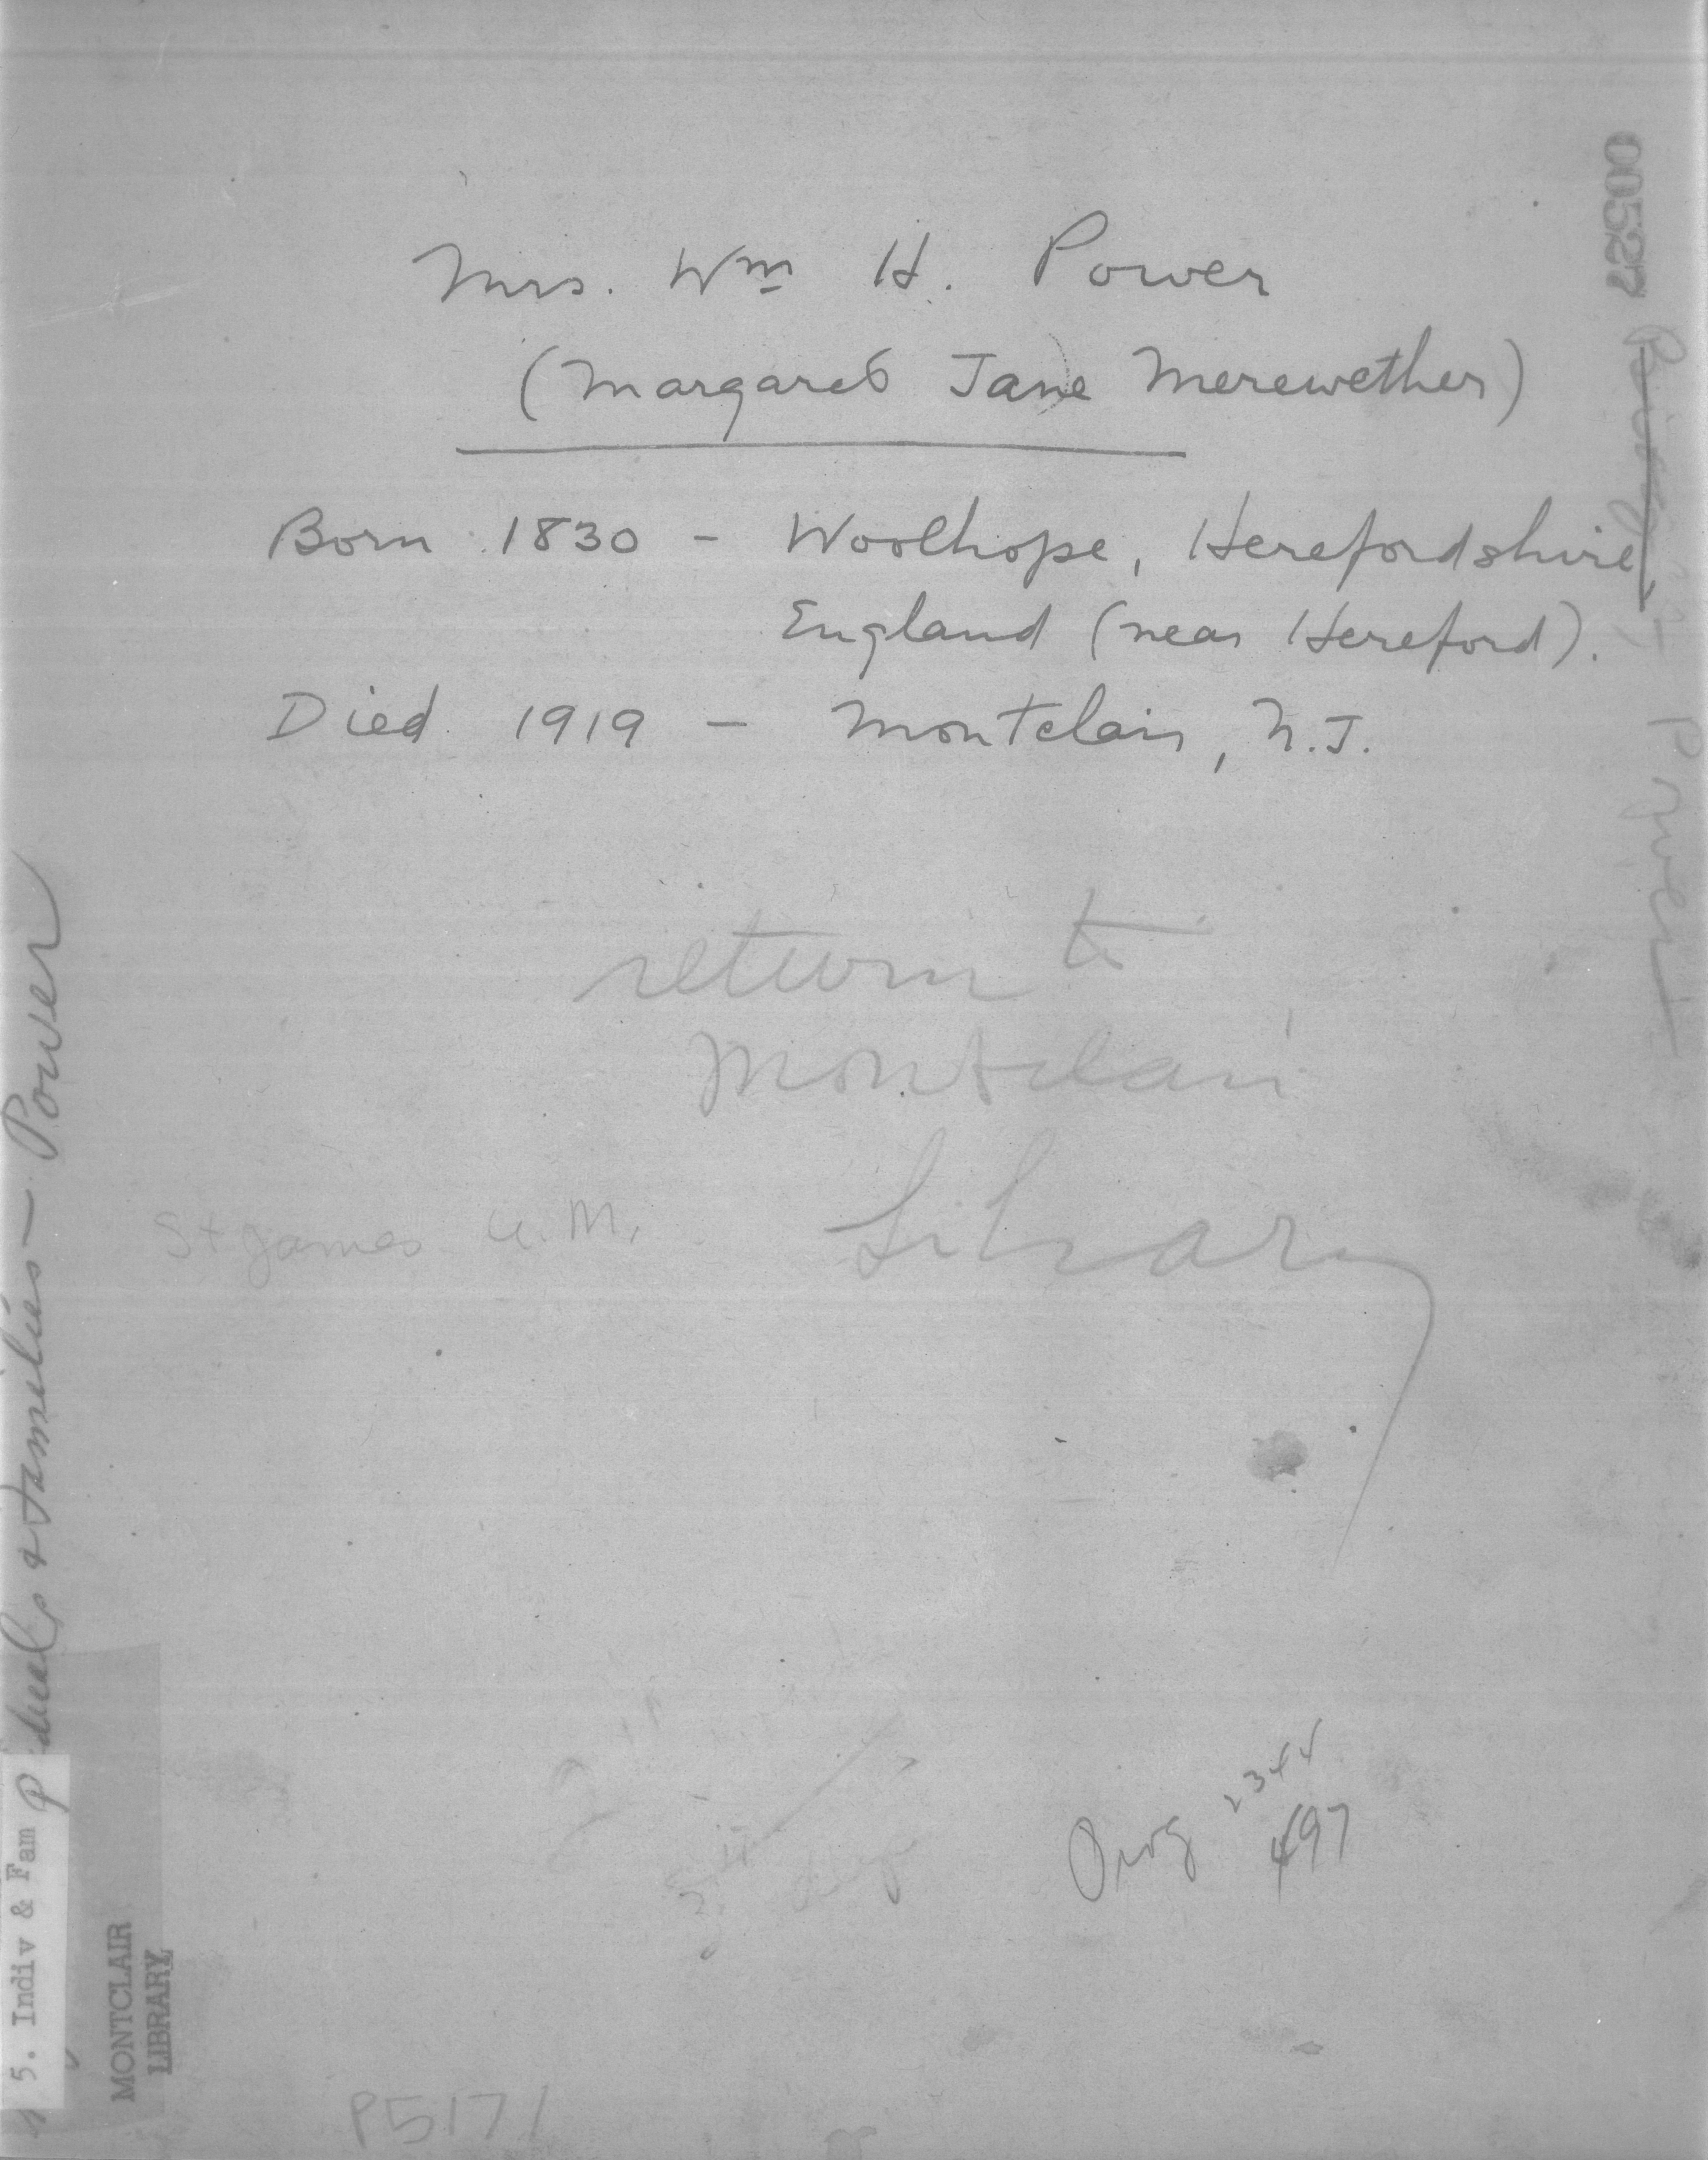 Mrs. Wm H. Power
(Margaret Jane Merewether)
Born 1830 - Woolhope, Herefordshire,
England (near Hereford).
Died 1919 - Montclair, N.J.
return to
Montclair
Library
St James U.M.
Orig 2344
497
P5171
00527
duals & Families - Power
5. Indiv & Fam P
MONTCLAIR
LIBRARY